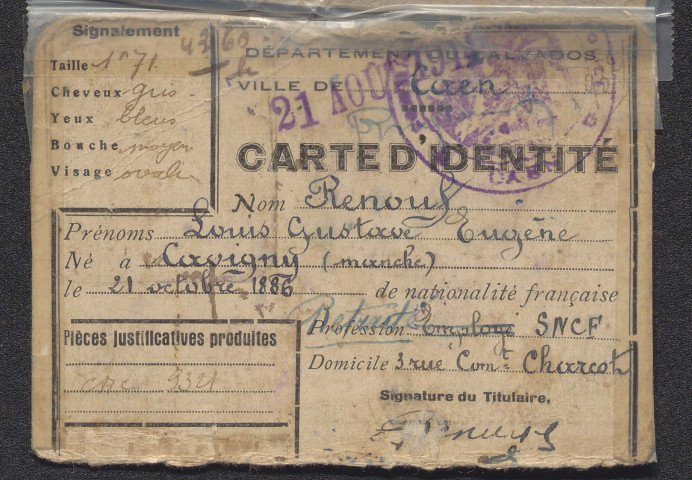 Signalement
Taille 1m71
Cheveux gris
Yeux bleus
Bouche moyen
Visage ovale
DÉPARTEMENT DU CALVADOS
VILLE DE Caen
21 AOU
CAEN
CARTE D'IDENTITÉ
Nom Renouf
Prénoms Louis Gustave Eugène
Né à Cavigny (manche)
le 21 octobre 1886 de nationalité française
Retraité
Profession Employé SNCF
Domicile 3 rue Comt Charcot
Pièces justificatives produites
Signature du Titulaire,